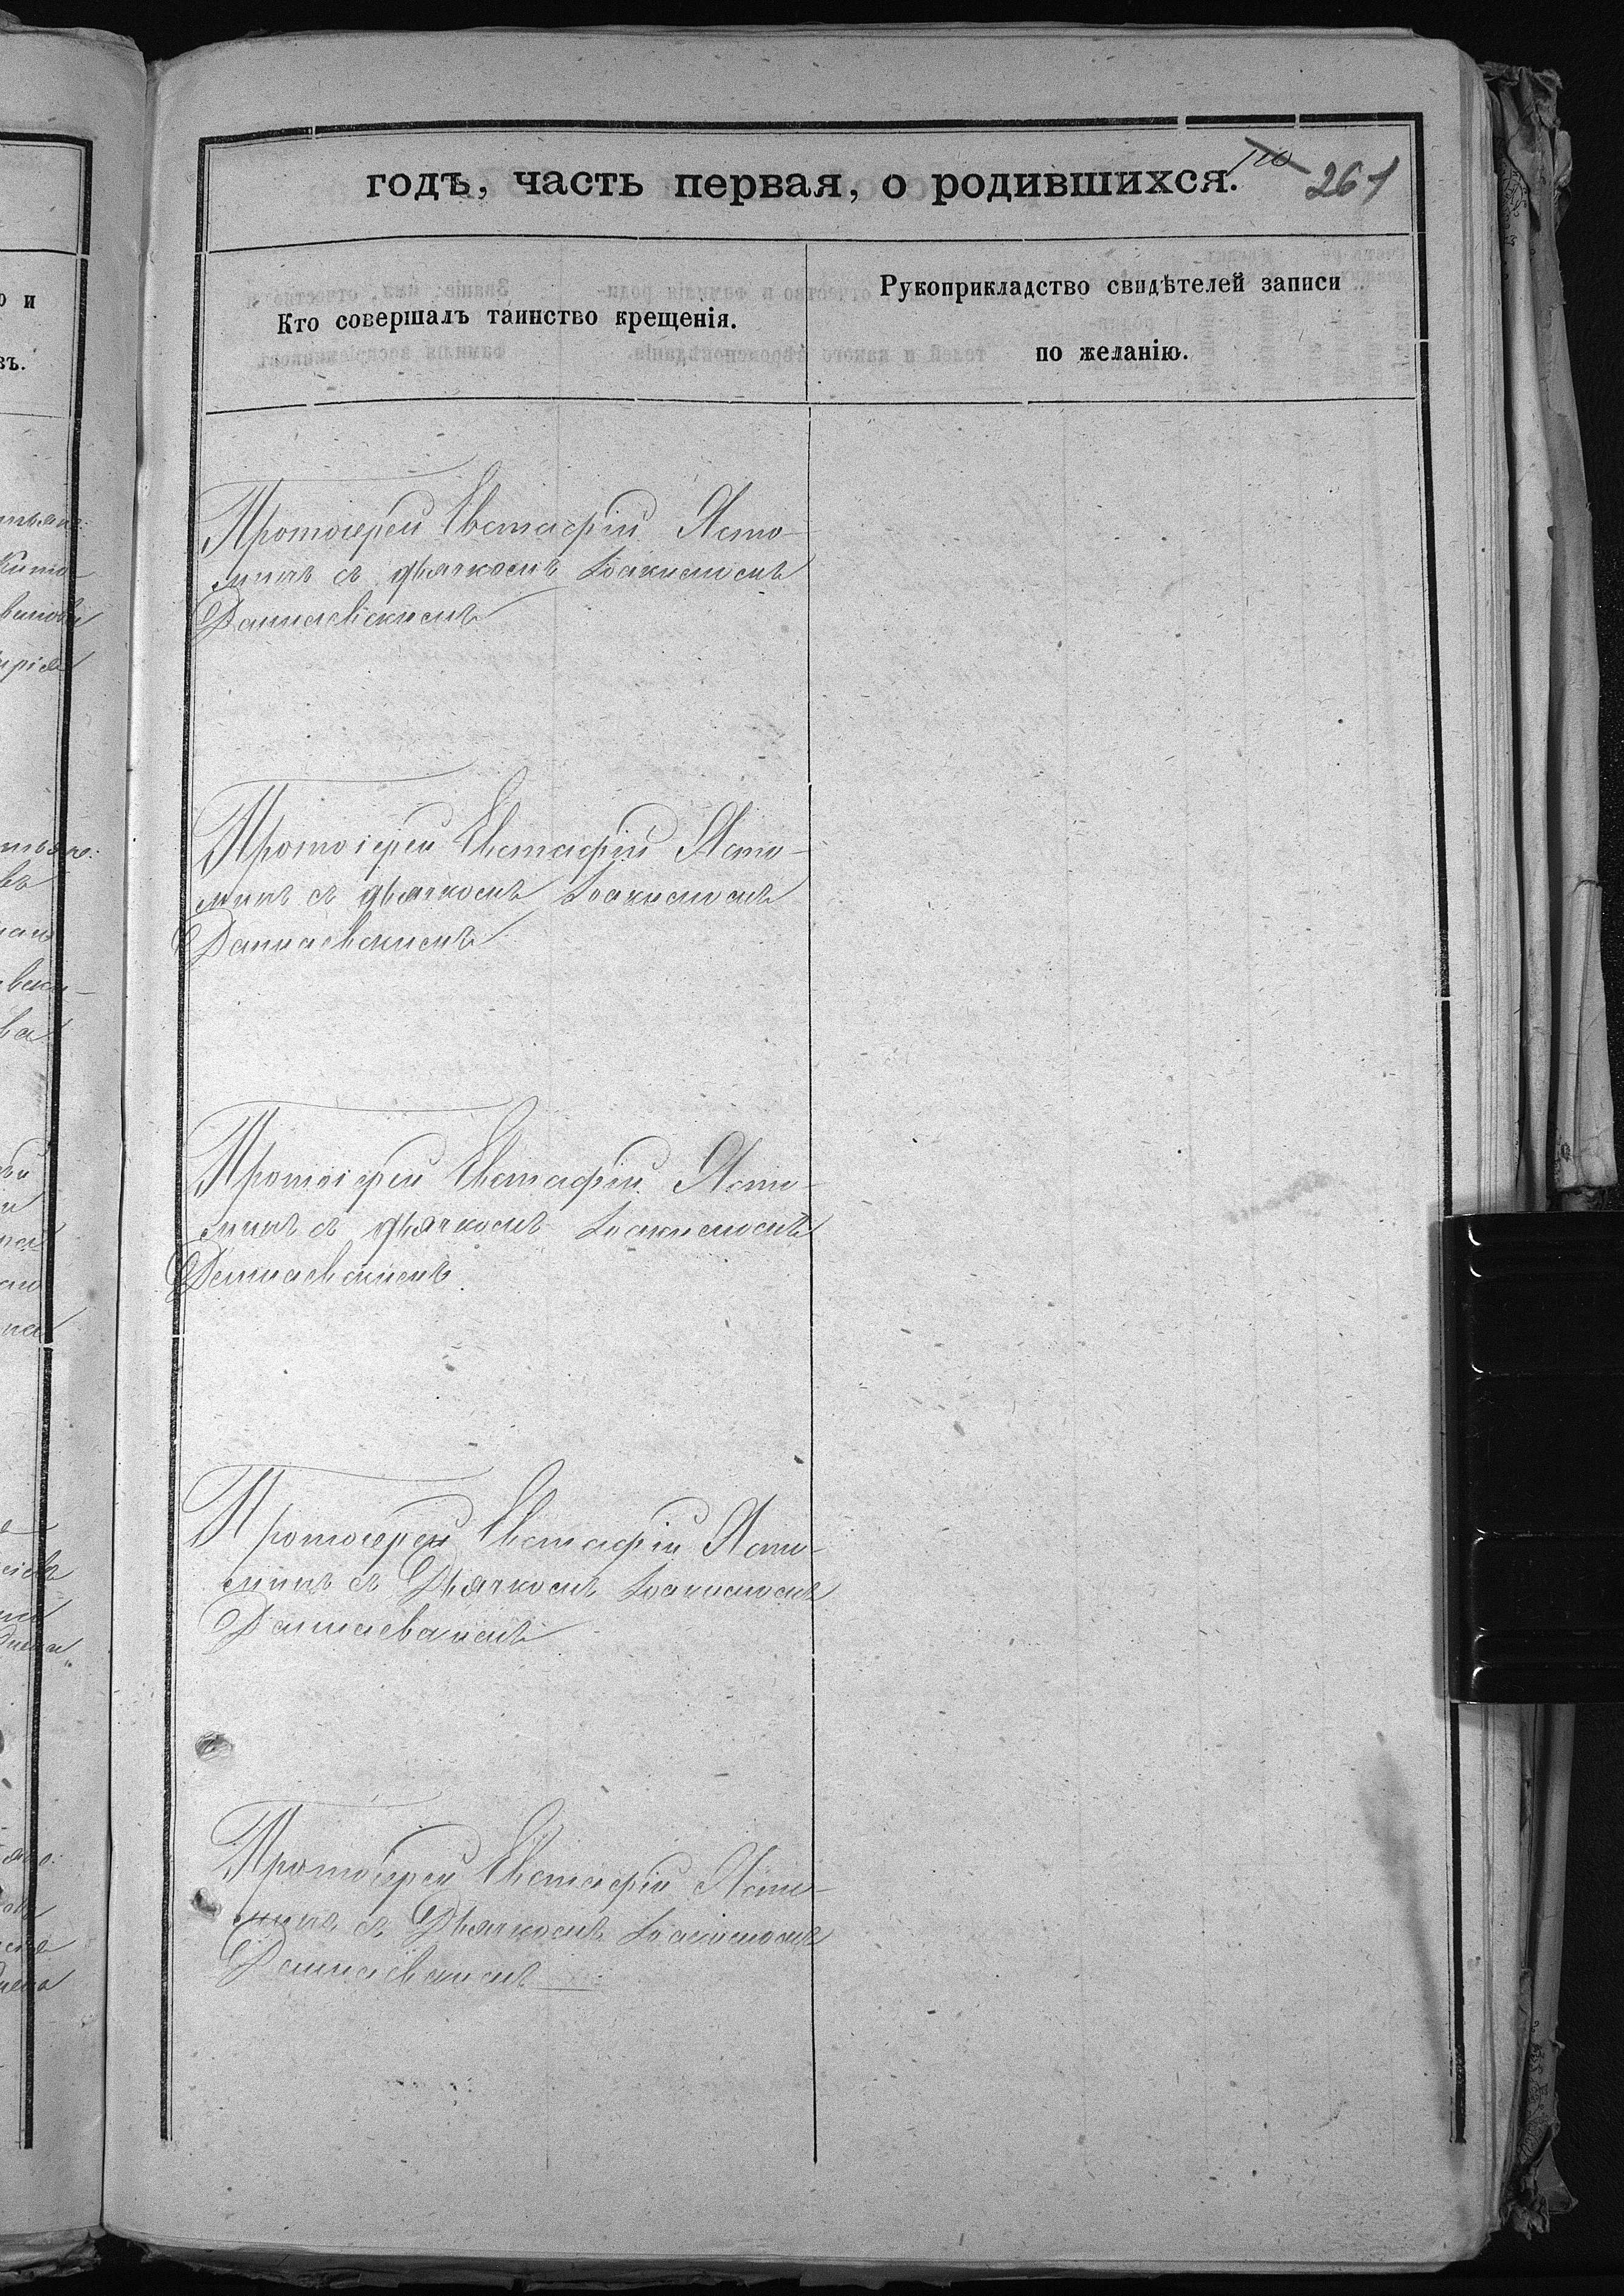 годъ, часть первая, о родившихся.
110
261
Кто совершалъ таинство крещенія.
Рукоприкладство свидѣтелей записи
по желанію.
Протоіерей Евстафій Ясто-
минъ съ дьячкомъ Іоакимомъ
Дашаевскимъ
Протоіерей Евстафій Ясто-
минъ съ дьячкомъ Іоакимомъ
Дашаевскимъ
Протоіерей Евстафій Ясто-
минъ съ дьячкомъ Іоакимомъ
Дашаевскимъ
Протоіерей Евстафій Ясто-
минъ съ Дьячкомъ Іоакимомъ
Дашаевскимъ
Протоіерей Евстафій Ясто-
минъ съ Дьячкомъ Іоакимомъ
Дашаевскимъ